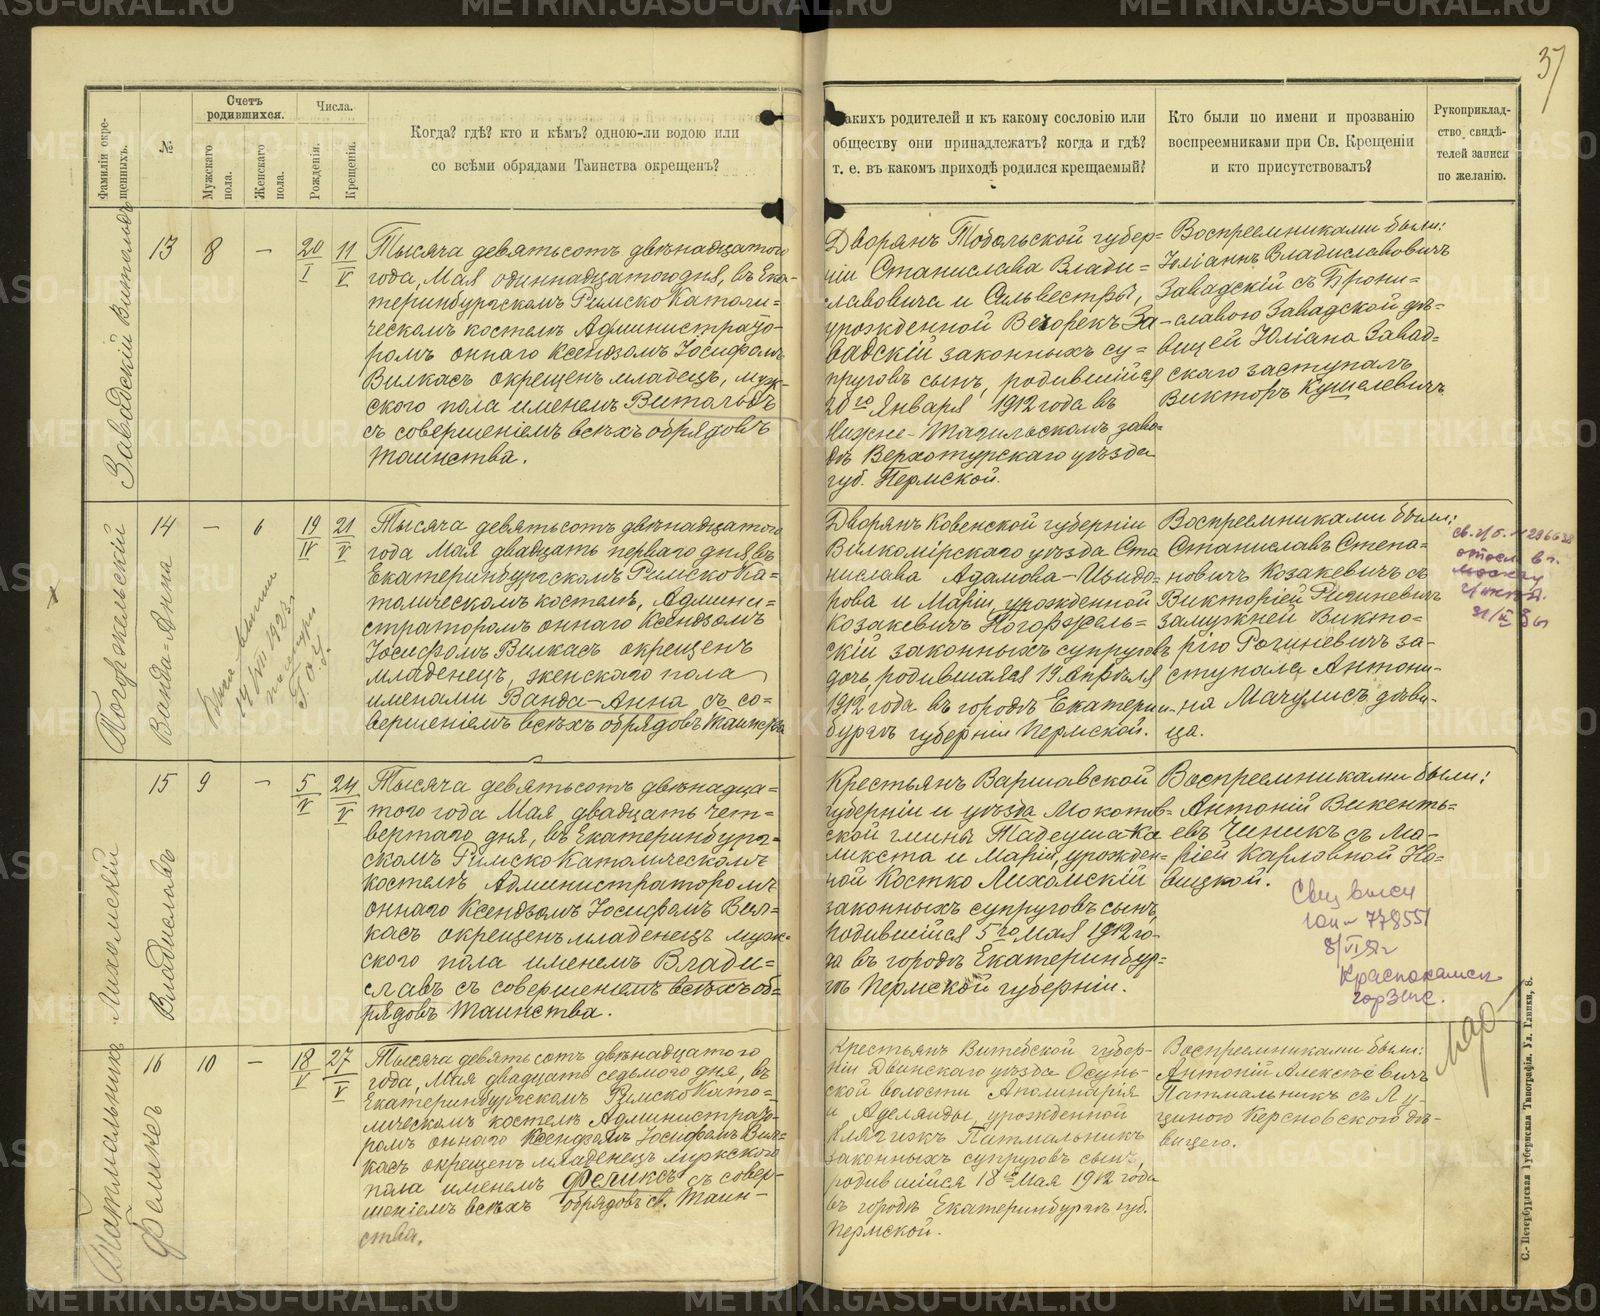 37
Фамиліи окре-
щенныхъ.
№.
Счетъ
родившихся.
Мужскаго
пола.
Женскаго
пола.
Числа.
Рожденія.
Крещенія.
Когда? гдѣ? кто и кѣмъ? одною-ли водою или
со всѣми обрядами Таинства окрещенъ?
акихъ родителей и къ какому сословію или
обществу они принадлежатъ? когда и гдѣ?
т. е. въ какомъ приходѣ родился крещаемый?
Кто были по имени и прозванію
воспреемниками при Св. Крещеніи
и кто присутствовалъ?
Рукоприклад-
ство свидѣ-
телей записи
по желанію.
Завадскій Витольдъ
13
8
-
20
I
11
V
Тысяча девятьсотъ двѣнадцатого
года, Мая одиннадцатого дня, въ Ека-
теринбургскомъ Римско Католи-
ческомъ костелѣ Администрато-
ромъ оннаго Ксендзомъ Іосифомъ
Вилкасъ окрещенъ младецъ, муж-
ского пола именемъ Витольдъ
съ совершеніемъ всѣхъ обрядовъ
таинства.
Дворянъ Тобольской губер=
ніи Станислава Влади=
славовича и Сильвестры,
урожденной Вецорекъ За-
вадскій законныхъ су=
пруговъ сынъ, родившійся
20го Января 1912 года въ
Нижне-Тагильскомъ заво-
дѣ Верхотурскаго уѣзда
губ. Пермской.
Воспреемниками были:
Юліанъ Владиславовичъ
Завадскій съ Брони=
славою Завадской дѣ-
вицей Юліана Завад=
скаго заступалъ
Викторъ Кушелевичъ
Погоржельскій
Ванда=Анна
14
-
6
19
IV
21
V
Тысяча девятьсотъ двѣнадцатого
года Мая двадцать перваго дня въ
Екатеринбургскомъ Римско Ка=
толическомъ костелѣ, Админи=
страторомъ оннаго Ксендзомъ
Іосифомъ Вилкасъ окрещенъ
младенецъ, женского пола
именами Ванда-Анна съ со-
вершеніемъ всѣхъ обрядовъ таинства
Дворянъ Ковенской губерніи
Вилкомірскаго уѣзда Ста
нислава Адамова-Изидо-
рова и Маріи, урожденной
Козакевичъ Погоржель=
скій законныхъ супруговъ
дочь, родившаяся 19 Апрѣля
1912 года въ городѣ Екатерин-
бургѣ губерніи Пермской.
Воспреемниками были:
Станиславъ Степа-
новичъ Козакевичъ съ
Викторіей Рогиневичъ
замужней Викто-
рію Рогиневичъ за-
ступала Антони-
на Мачулисъ дѣви-
ца.
Лихомскій
Владиславъ
15
9
-
5
V
24
V
Тысяча девятьсотъ двѣнадца=
того года Мая двадцать чет=
вертаго дня, въ Екатеринбург=
скомъ Римско Католическомъ
костелѣ Администраторомъ
оннаго Ксендзомъ Іосифомъ Вил-
касъ окрещенъ младенецъ муж-
ского пола именемъ Влади=
славъ съ совершеніемъ всѣхъ об=
рядовъ таинства.
Крестьянъ Варшавской
губерніи и уѣзда Мокотов-
ской гмины Тадеуша-Ка
ликста и Маріи, урожден-
ной Костко Лихомскій
законныхъ супруговъ сынъ,
родившійся 5го Мая 1912 го-
да въ городѣ Екатеринбур=
гѣ Пермской губерніи.
Воспреемниками были:
Антоній Викенть=
евъ Чиникъ съ Ма-
ріей Карловной Но=
вицкой.
Краснокамск
горЗагс.
Патмальникъ
Феликсъ
16
10
-
18
V
27
V
Тысяча девятьсотъ двѣнадцатого
года, Мая двадцать седьмого дня, въ
Екатеринбургскомъ Римско Като-
лическомъ костелѣ Администрато-
ромъ оннаго Ксендзомъ Іосифомъ Вил=
касъ окрещенъ младенецъ мужского
пола именемъ Феликсъ съ совер-
шеніемъ всѣхъ обрядовъ св. Таин-
ства.
Крестьянъ Витебской губер-
ніи Двинскаго уѣзда Осунь-
ской волости Аполинарія
и Аделаиды, урожденной
Патмальникъ
законныхъ супруговъ сынъ,
родившійся 18го Мая 1912 года
въ городѣ Екатеринбургѣ губ.
Пермской.
Воспреемниками были:
Антоній Алексѣевичъ
Патмальникъ съ Лу-
циною Керсновского дѣ-
вицею.
С.-Петербургская Губернская Типографія. Ул. Глинки, 8.
METRIKI.GASO-URAL.RU